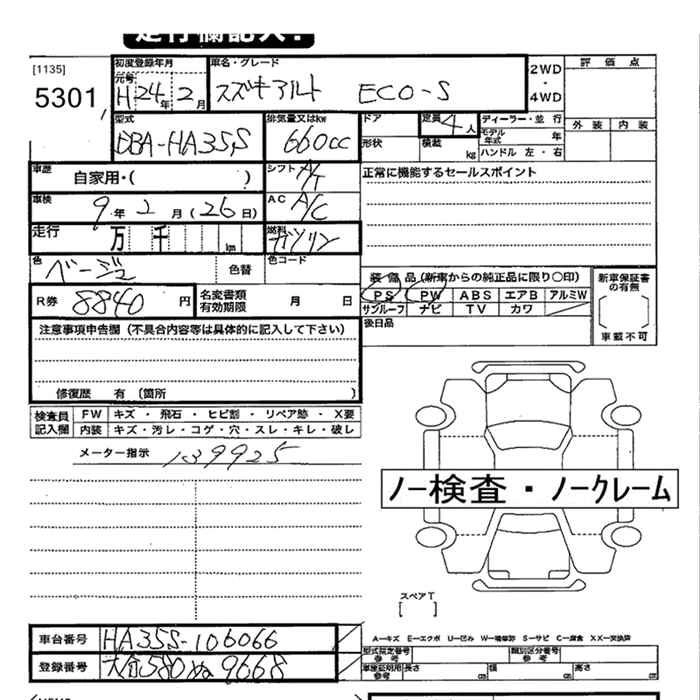 走行欄記入!
[1135]
5301
初度登録年月
元号
H 24年 2月
車名・グレード
スズキ アルト ECO-S
2WD
・
4WD
評価点
外装 内装
型式
DBA-HA35S
排気量又はkw
660cc
ドア
形状
定員 4人
積載 kg
ディーラー・並行
モデル年式 年
ハンドル 左・右
車歴
自家用・( )
シフト A/T
正常に機能するセールスポイント
車検
9年 2月 (26日)
AC A/C
走行 万 千 km
燃料 ガソリン
色 ベージュ
色替
色コード
装備品 (新車からの純正品に限り〇印)
PS PW ABS エアB アルミW
サンルーフ ナビ TV カワ
新車保証書の有無
車載不可
R券 8840円
名変書類有効期限 月 日
後日品
注意事項申告欄 (不具合内容等は具体的に記入して下さい)
修復歴 有 (箇所 )
検査員記入欄
FW キズ・飛石・ヒビ割・リペア跡・X要
内装 キズ・汚レ・コゲ・穴・スレ・キレ・破レ
メーター指示 139925
ノー検査・ノークレーム
スペアT
[ ]
車台番号 HA35S-106066
登録番号 大分580ぬ9668
A-キズ E-エクボ U-凹ミ W-補修跡 S-サビ C-腐食 XX-交換済
型式指定番号 参考
類別区分番号 参考
車庫証明用参考 長さ cm 幅 cm 高さ cm